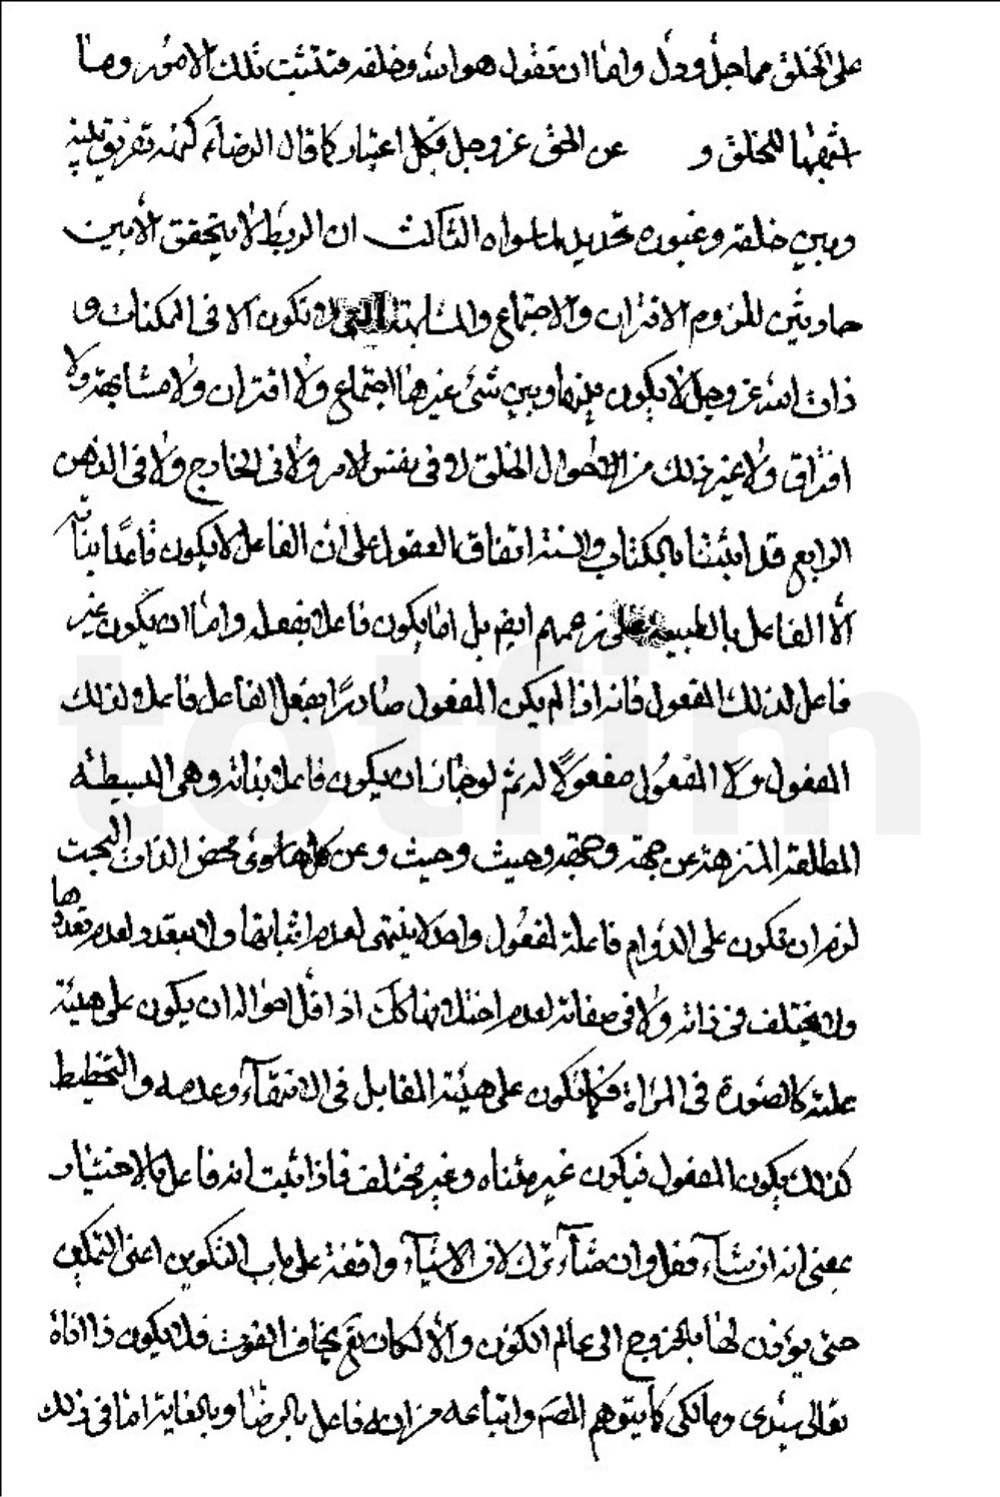 على الخلق مما جل ودل واما ان تقول هو الله وخلقه فتثبت تلك الامور وما
اثبتها للخلق و عن الحق عزوجل فكل اعتبار كما قال الرضاء كنهه تفريق بينه
وبين خلقه وغيوره تحديد لما سواه الثالث ان الربط لا يتحقق الا بين
حادثين للزوم الاقتران والاجتماع والمشابهة التي لا تكون الا في الممكنات و
ذات الله عزوجل لا يكون بينها وبين شئ غيرها اجتماع ولا اقتران ولا مشابهة ولا
افتراق ولا غير ذلك من احوال الخلق لا في نفس الامر ولا في الخارج ولا في الذهن
الرابع قد اثبتنا بالكتاب والسنة اتفاق العقول على ان الفاعل لا يكون فاعلا بذاته
الا الفاعل بالطبيعة على زعمهم ايضم بل اما يكون فاعلا بفعله واما ان يكون غير
فاعل لذلك المفعول فانه اذا لم يكن المفعول صادرا بفعل الفاعل فاعلا لذلك
المفعول ولا المفعول مفعولا له ثم لو جاز ان يكون فاعلا بذاته وهي البسيطة
المطلقة المنزهة عن جهة وجهة وحيث وحيث وعن كل ما سوى محض الذات البحت
لزم ان تكون على الدوام فاعلة لمفعول واحد لا ينتهي لعدم انتهائها ولا يتعدد لعدم تعددها
ولا يختلف في ذاته ولا في صفاته لعدم اختلافها كل اذ اقل احواله ان يكون على هيئة
علته كالصورة في المرآة فكما تكون على هيئة المقابل في الانتقاء وعدمه والتخطيط
كذلك يكون المفعول فيكون غير متناه وغير مختلف فاذا ثبت انه فاعل بالاختيار
بمعنى انه ان شاء فعل وان شاء ترك لان الاشياء واقفة على باب التكوين اعنى التمكين
حتى يؤذن لها بالخروج الى عالم الكون والا لكان تع يخاف الفوت فلا يكون ذا اناة
تعالى سيدى ومالكى كما يتوهم المصم واتباعه من انه فاعل بالرضا وبالعناية اما في ذلك